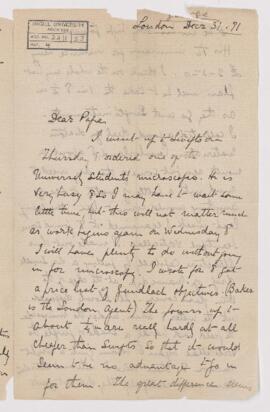 McGILL UNIVERSITY
ARCHIVES
ACC. NO.
REF.
London Decr 31. 91
Dear Papa,
I went up to Swifts on
Thursday & ordered one of the
University Students' microscopes. He is
very busy & so I may have to wait some
little time, but this will not matter much
as work begins again on Wednesday &
I will have plenty to do without going
in for microscopy. I wrote for & got
a price list of Gundlach objectives (Baker
is the London Agent) The powers up to
about are really hardly at all
cheaper than Swifts so that it would
seem to be no advantage to go in
for them. The great difference seems